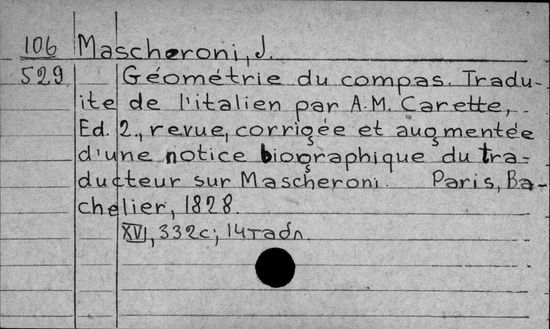 106 Mascheroni, J.
529 Géométrie du compas. Tradu-
ite de l'italien par A.M. Carette,
Ed. 2., revue, corrigée et augmentée
d'une notice biographique du tra-
ducteur sur Mascheroni. Paris, Ba-
chelier, 1828.
XVI, 332с; 14табл.